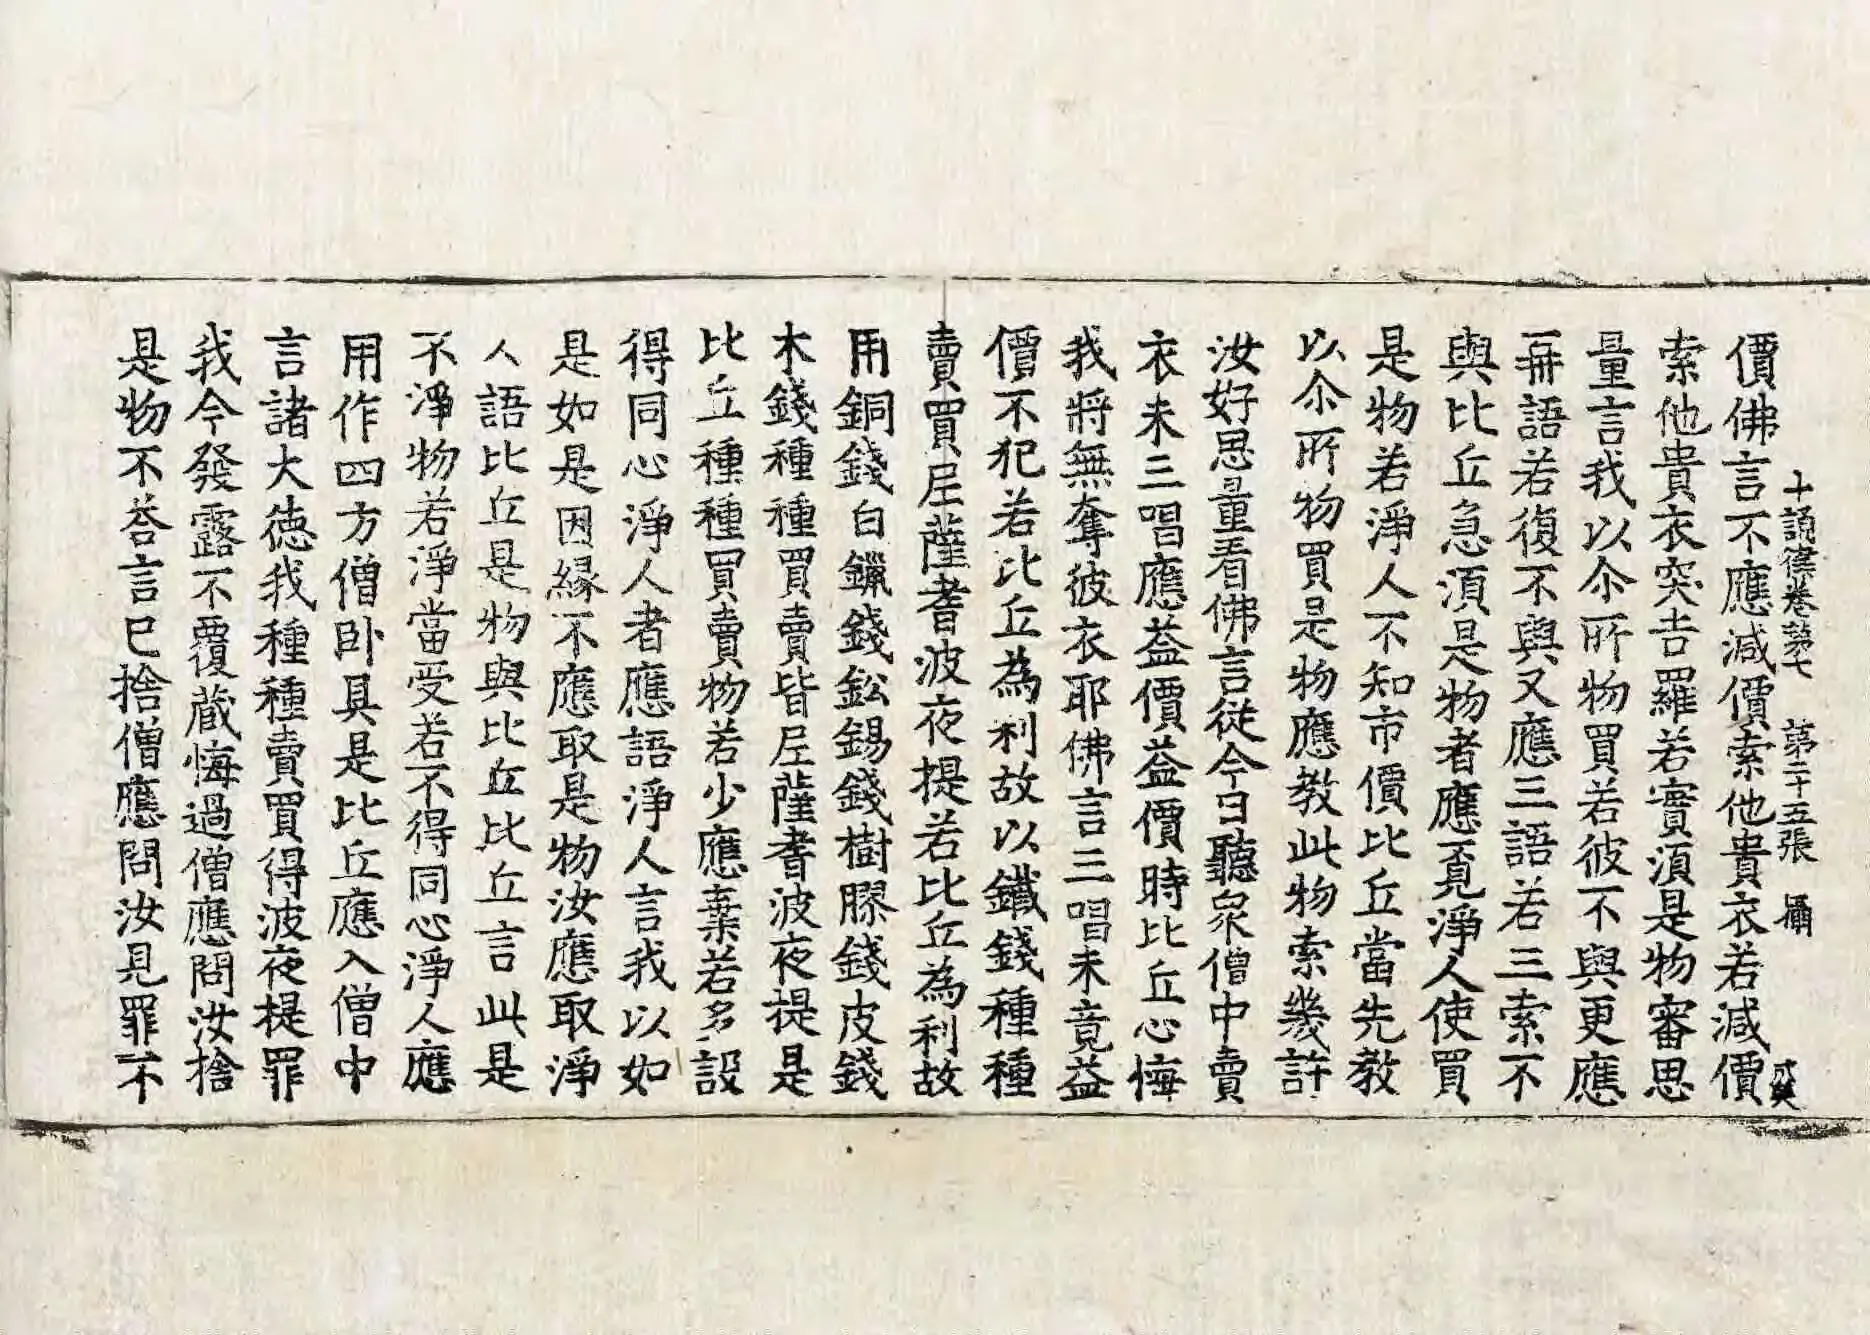 十誦律卷第七 第二十五張 攝
價佛言不應減價索他貴衣若減價
索他貴衣突吉羅若實須是物審思
量言我以尒所物買若彼不與更應
再語若復不與又應三語若三索不
與比丘急須是物者應覓淨人使買
是物若淨人不知市價比丘當先教
以尒所物買是物應教此物索幾許
汝好思量看佛言從今日聽衆僧中賣
衣未三唱應益價益價時比丘心悔
我將無奪彼衣耶佛言三唱未竟益
價不犯若比丘為利故以鐵錢種種
賣買尼薩耆波夜提若比丘為利故
用銅錢白鑞錢鈆錫錢樹膠錢皮錢
木錢種種買賣皆尼薩耆波夜提是
比丘種種買賣物若少應棄若多設
得同心淨人者應語淨人言我以如
是如是因緣不應取是物汝應取淨
人語比丘是物與比丘比丘言此是
不淨物若淨當受若不得同心淨人應
用作四方僧卧具是比丘應入僧中
言諸大德我種種賣買得波夜提罪
我今發露不覆藏悔過僧應問汝捨
是物不荅言已捨僧應問汝見罪不